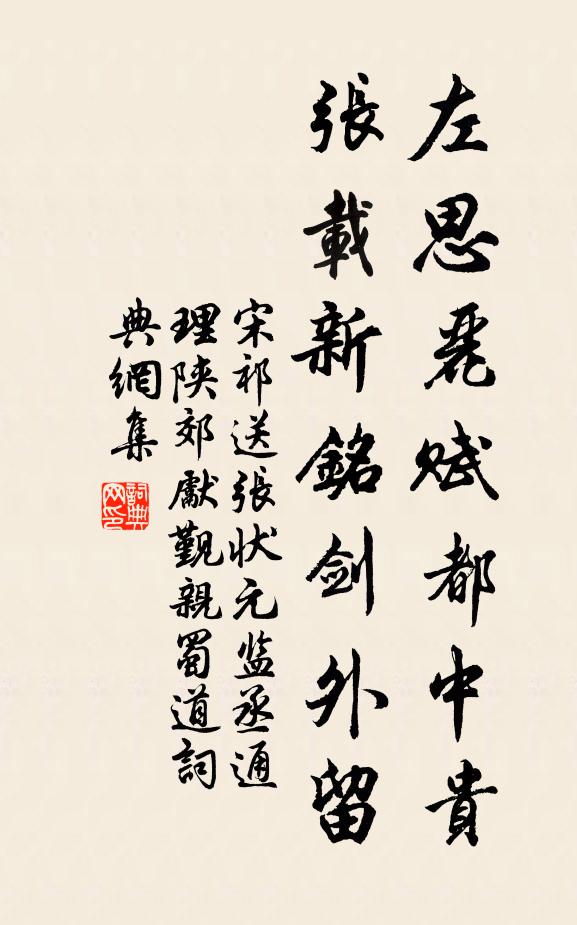 左思麗賦都中貴
張載新銘劍外留
宋祁送張狀元監丞通
理陝郊獻觀親蜀道詞
典網集
詞典
网印